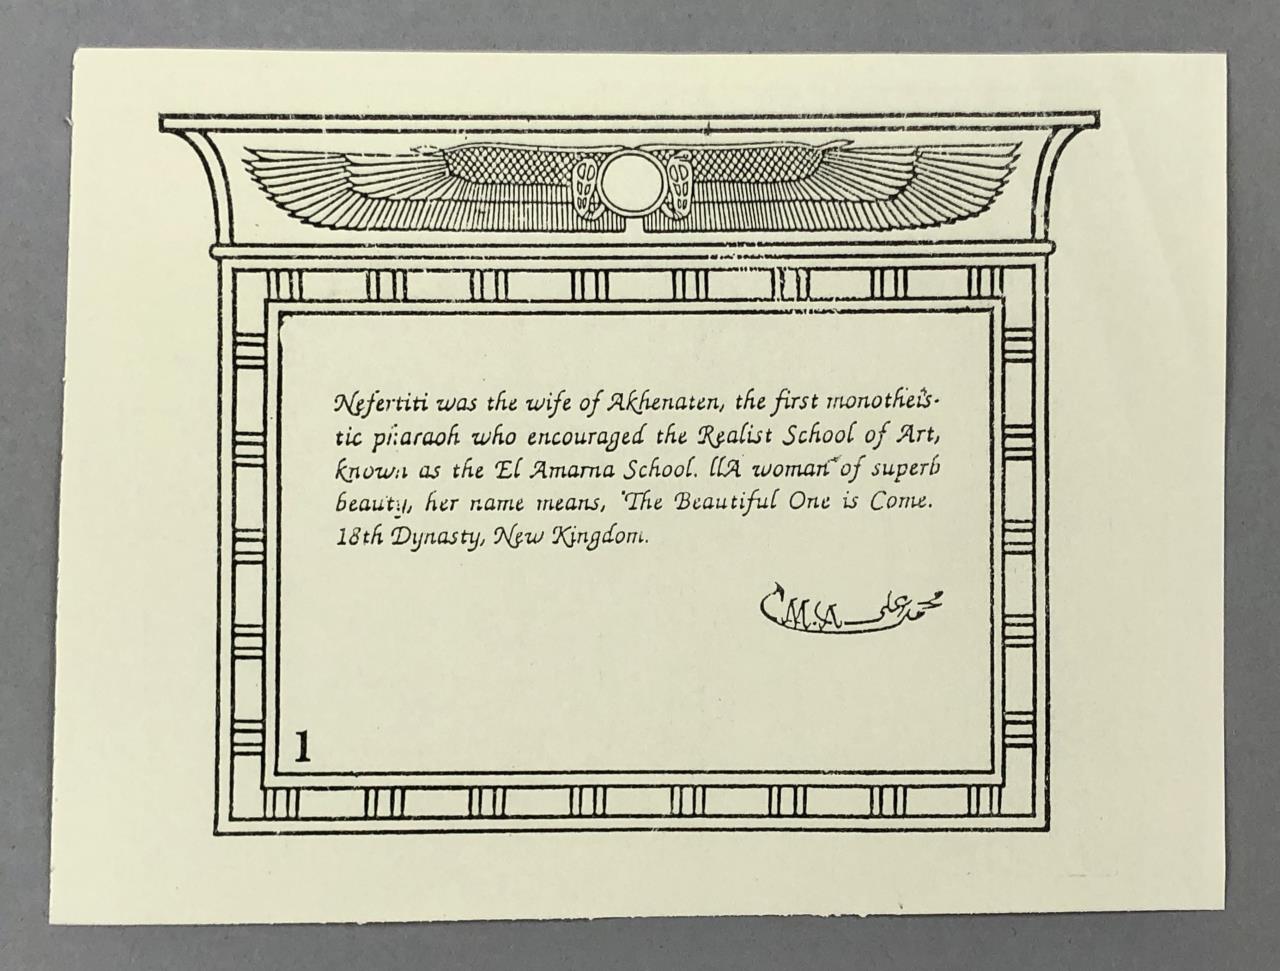 Nefertiti was the wife of Akhenaten, the first monotheis-
tic pharaoh who encouraged the Realist School of Art,
known as the El Amarna School. llA woman of superb
beauty, her name means, 'The Beautiful One is Come.
18th Dynasty, New Kingdom.
M.A محمد علي
1